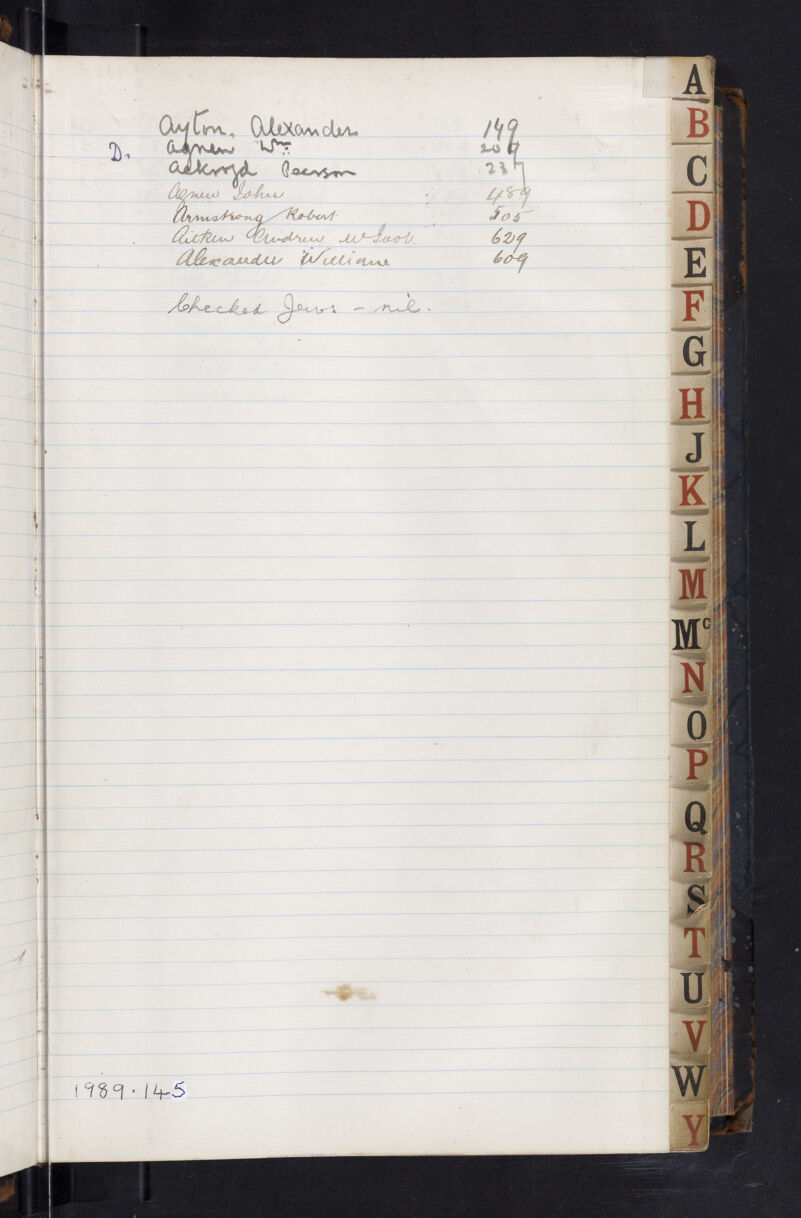 Ayton. Alexander 149
D. Agnew Wm 209
Ackroyd Pearson 237
Agnew John 489
Armstrong Robert 505
Aitken Andrew 629
Alexander William 609
Checked Jews - nil.
1989.145
A
B
C
D
E
F
G
H
J
K
L
M
Mc
N
O
P
Q
R
S
T
U
V
W
Y